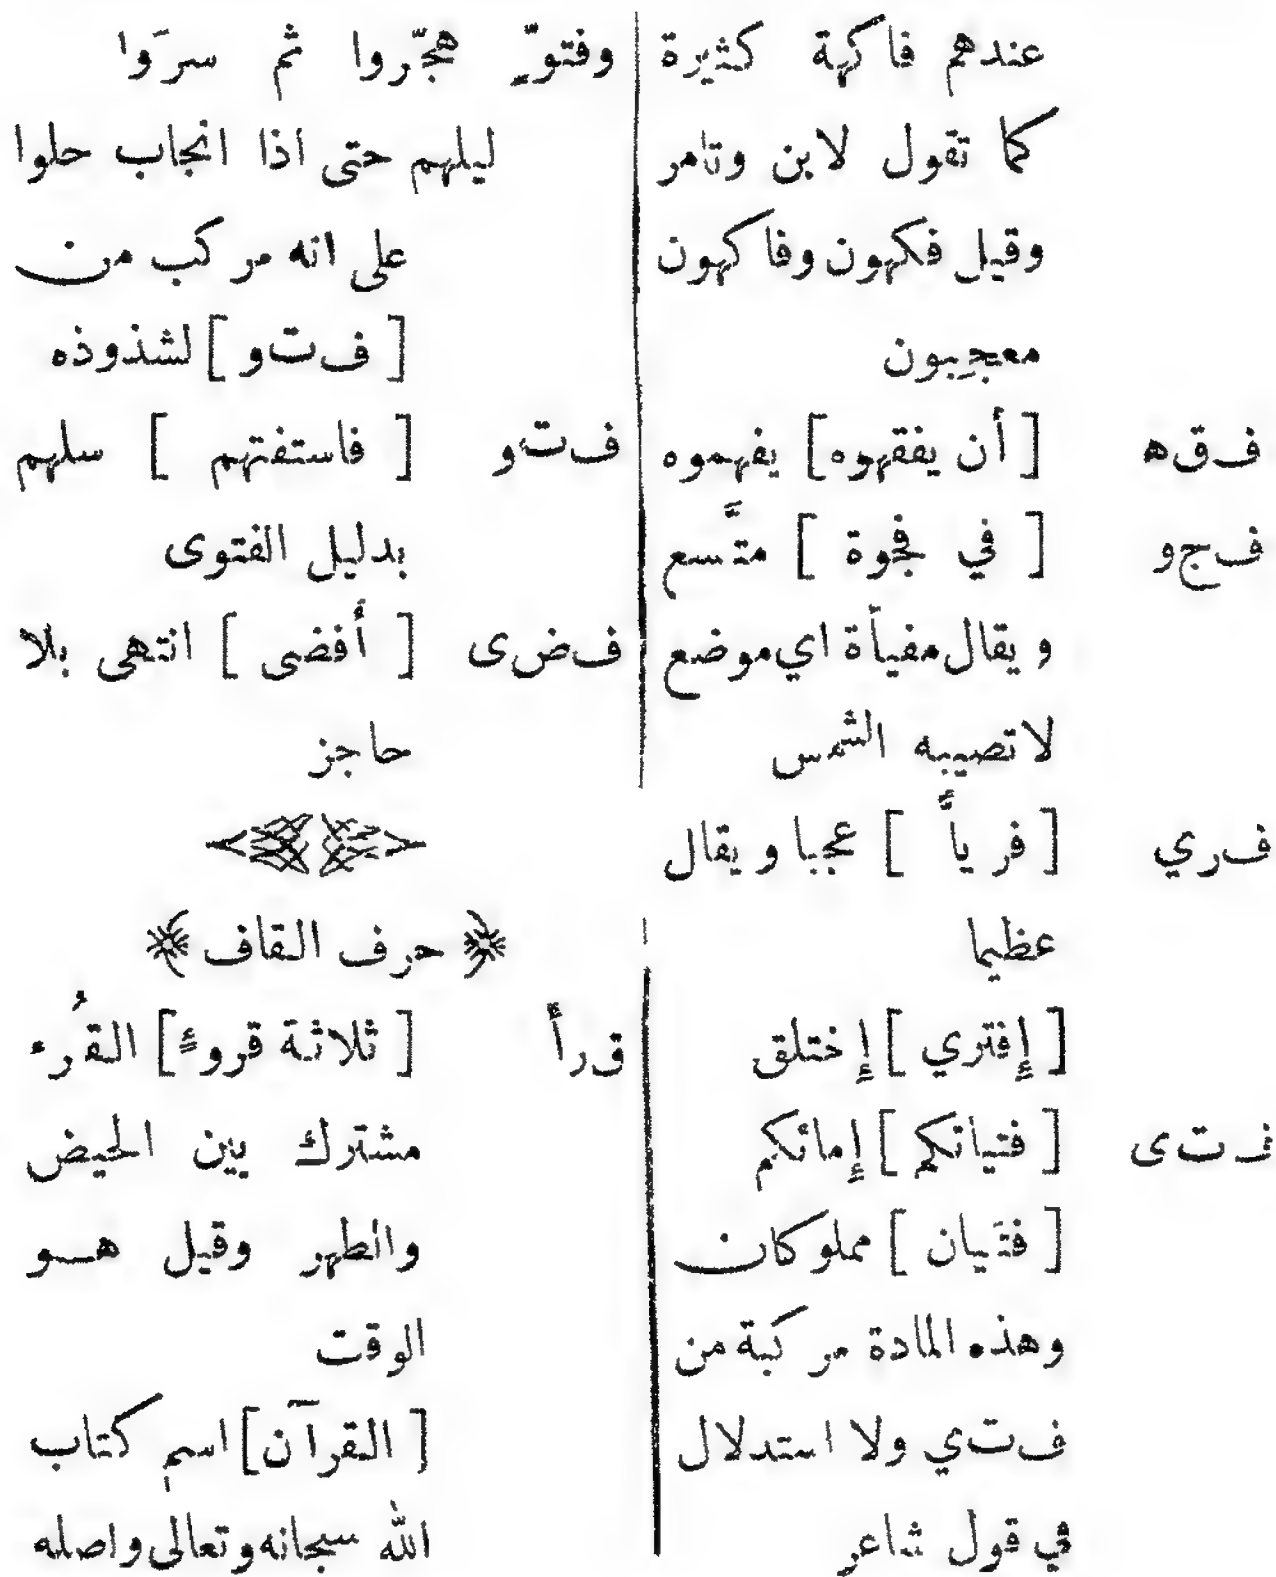 عندهم فاكهة كثيرة
كما تقول لابن وتامر
وقيل فكهون وفاكهون
معجبون
ف ق ه [ أن يفقهوه ] يفهموه
ف ج و [ في فجوة ] متَّسع
ويقال مفيأة اي موضع
لا تصيبه الشمس
ف ر ي [ فرياًّ ] عجبا ويقال
عظيما
[ إِفتري ] إِختلق
ف ت ى [ فتياتكم ] إِمائكم
[ فتَيان ] مملوكان
وهذه المادة مركبة من
ف ت ي ولا استدلال
في قول شاعر
وفتوٍّ هجّروا ثم سرَوا
ليلهم حتى اذا انجاب حلوا
على انه مركب من
[ ف ت و ] لشذوذه
ف ت و [ فاستفتهم ] سلهم
بدليل الفتوى
ف ض ى [ أَفضى ] انتهى بلا
حاجز
﴿ حرف القاف ﴾
ق ر أ [ ثلاثة قروءٍ ] القُرء
مشترك بين الحيض
والطهر وقيل هو
الوقت
[ القرآن ] اسم كتاب
الله سبحانه وتعالى واصله